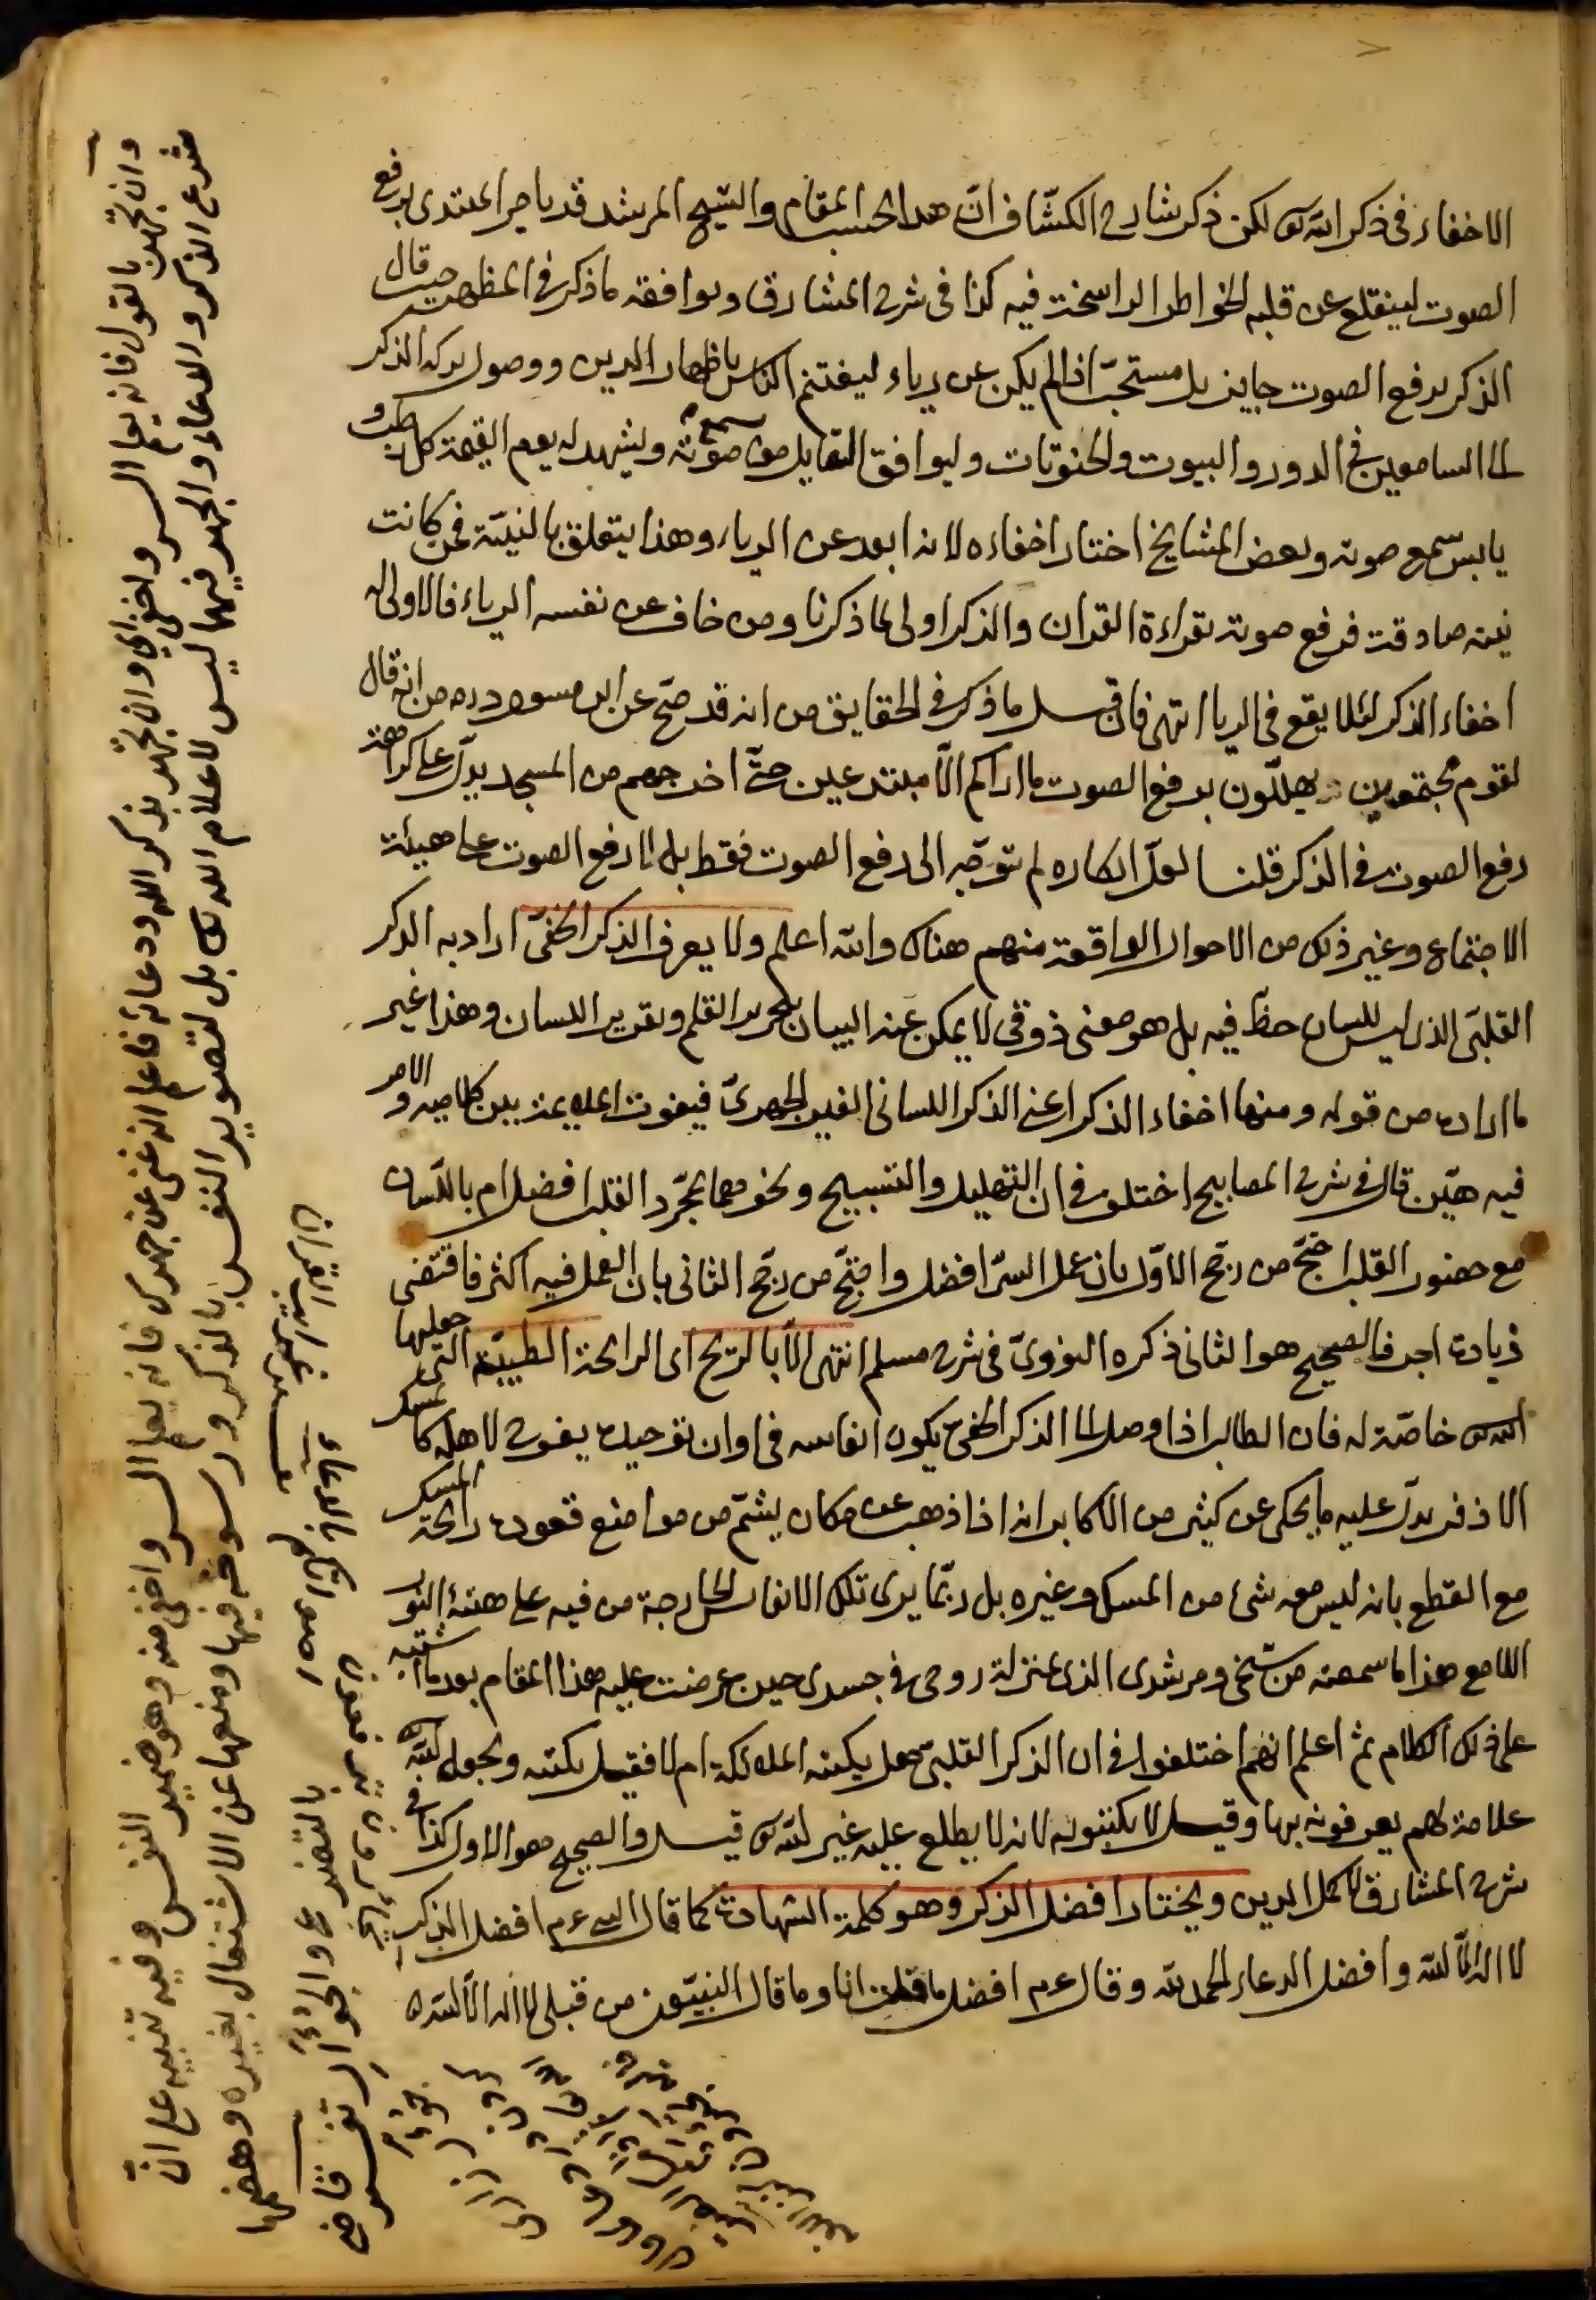 الاخفاء فى ذكر الله تع لكن ذكر شارح الكشّاف انّ هذا بحسب المقام والشيخ المرشد قد يامر المبتدى برفع
الصوت لينقلع عن قلبه الخواطر الراسخة فيه كذا فى شرح المشارق ويوافقه ما ذكر فى المظهر حيث قال
الذكر برفع الصوت جايز بل مستحبّ اذا لم يكن عن رياء ليغتنم الناس باظهار الدين ووصول بركة الذكر
الى السامعين فى الدور والبيوت والحنوتات وليوافق القايل من سمع صوته ويشهد له يوم القيمة كل رطب و
يابس سمع صوته وبعض المشايخ اختار اخفاءه لانه ابعد عن الرياء وهذا يتعلق بالنيّة فمن كانت
نيته صادقة فرفع صوته بقراءة القران والذكر اولى لما ذكرنا ومن خاف عن نفسه الرياء فالاولى له
اخفاء الذكر لئلا يقع فى الريا انتهى فان قيل ما ذكر فى الحقايق من انه قد صحّ عن ابن مسعود رض انه قال
لقوم مجتمعين يهلّلون برفع الصوت ما اراكم الّا مبتدعين حتّى اخرجهم من المسجد يدلّ على كراهة
رفع الصوت فى الذكر قلنا لعلّ انكاره لم يتوجّه الى رفع الصوت فقط بل الى رفع الصوت على هيئة
الاجتماع وغير ذلك من الاحوال الواقعة منهم هناك والله اعلم ولا يعرف الذكر الخفىّ اراد به الذكر
القلبىّ الذى ليس للسان حظّ فيه بل هو معنى ذوقى لا يمكن عنه البيان بتحرير القلم وتقرير اللسان وهذا غير
ما اراده من قوله ومنها اخفاء الذكر اعنى الذكر اللسانى الغير الجهرىّ بين كلاميه والامر
فيه هيّن قال فى شرح المصابيح اختلف فى ان التهليل والتسبيح ونحوهما بمجرّد القلب افضل ام باللّسان
مع حضور القلب احتجّ من رجّح الاوّل بان عمل السرّ افضل واحتجّ من رجّح الثانى بان العمل فيه اكثر فاقتضى
زيادة اجر فالصحيح هو الثانى ذكره النووىّ فى شرح مسلم انتهى الّا بالريح اى الرايحة الطيبّة التى جعلها
الله تع خاصّة له فان الطالب اذا وصل الى الذكر الخفىّ يكون انفاسه فى اوان توحيده يفوح لاهله كالمسك
الاذفر يدلّ عليه ما يحكى عن كثير من الاكابر انه اذا ذهب عن مكان يشتمّ من مواضع قعوده رايحة المسك
مع القطع بانه ليس معه شئ من المسك وغيره بل ربّما يرى تلك الانفاس الخارجة من فيه على هيئة النور
اللامع هذا ما سمعته من شيخى ومرشدى الذى بمنزلة روحى فى جسدى حين عرضت عليه هذا المقام بعد ما اشتبه
على ذلك الكلام ثم اعلم انهم اختلفوا فى ان الذكر القلبىّ هل يكتبه الملائكة ام لا فقيل يكتبه ويجعل الله
علامة لهم يعرفونه بها وقيل لا يكتبونه لانه لا يطلع عليه غير الله تع قيل والصحيح هو الاول كذا فى
شرح المشارق لاكمل الدين ويختار افضل الذكر وهو كلمة الشهادة كما قال النبى عم افضل الذكر
لا اله الّا الله وافضل الدعاء الحمد لله وقال عم افضل ما قلت انا وما قال النبيّون من قبلى لا اله الّا الله
وان تجهر بالقول فانه يعلم السر واخفى اى وان تجهر بذكر الله ودعائه فاعلم انه غنى عن جهرك فانه يعلم السر واخفى منه وهو ضمير النفس وفيه تنبيه على انّ
شرع الذكر والدعاء والجهر فيهما ليس لاعلام الله تع بل لتصوير النفس بالذكر ورسوخه فيها ومنعها عن الاشتغال بغيره وهضمها
بالتضرع والجؤار
قاض